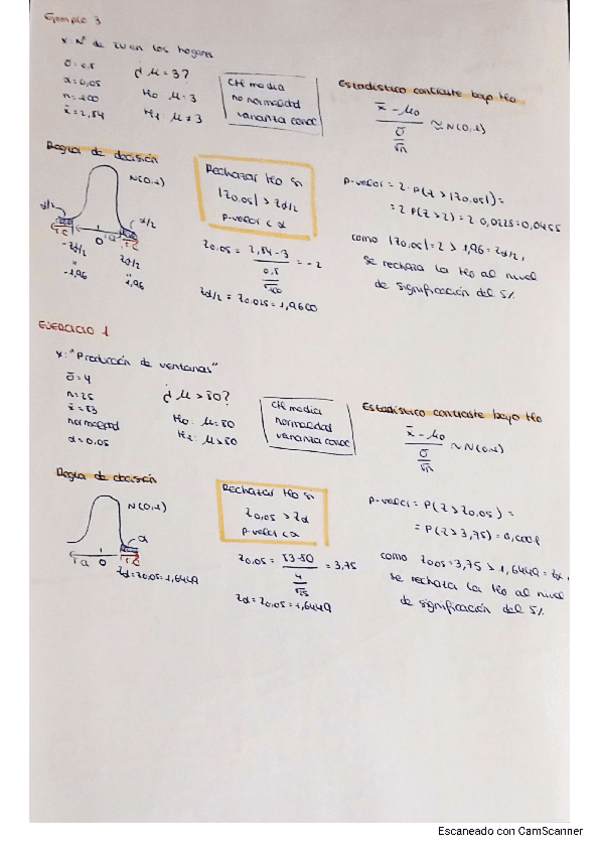 Ejemplo 3
x: Nº de TV en los hogares
σ = 0,5
α = 0,05
n = 100
x̄ = 2,84
¿ μ = 3?
H₀: μ = 3
H₁: μ ≠ 3
CH media
no normalidad
varianza conoc
Estadístico contraste bajo H₀
x̄ - μ₀ / σ/√n ≈ N(0,1)
Regla de decisión
N(0,1)
α/2
α/2
-zα/2
0
zα/2
-1,96
1,96
Rechazar H₀ si
|z0,05| > zα/2
p-valor < α
z0,05 = 2,84 - 3 / 0,5/√100 = -2
zα/2 = z0,025 = 1,9600
p-valor = 2 · P(z > |z0,05|) =
= 2 P(z > 2) = 2 0,0228 = 0,0455
como |z0,05| = 2 > 1,96 = zα/2,
se rechaza la H₀ al nivel
de significación del 5%
EJERCICIO 1
x: "Producción de ventanas"
σ = 4
n = 25
x̄ = 53
normalidad
α = 0,05
¿ μ > 50?
H₀: μ = 50
H₁: μ > 50
CH media
normalidad
varianza conoc
Estadístico contraste bajo H₀
x̄ - μ₀ / σ/√n ~ N(0,1)
Regla de decisión
N(0,1)
α
0
zα = z0,05 = 1,6449
Rechazar H₀ si
z0,05 > zα
p-valor < α
z0,05 = 53-50 / 4/√25 = 3,75
zα = z0,05 = 1,6449
p-valor = P(z > z0,05) =
= P(z > 3,75) = 0,0001
como z0,05 = 3,75 > 1,6449 = zα,
se rechaza la H₀ al nivel
de significación del 5%
Escaneado con CamScanner